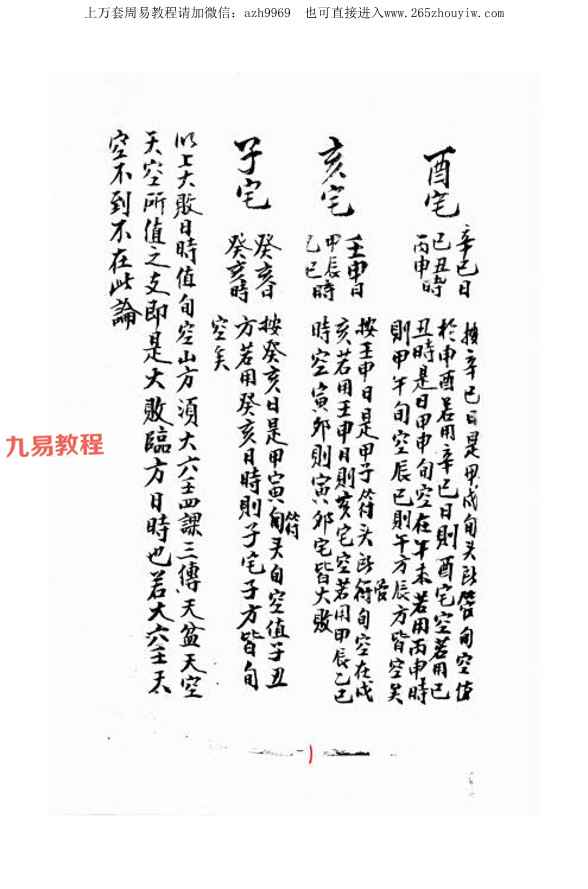 上万套周易教程请加微信：azh9969　也可直接进入www.265zhouyiw.com
酉宅
辛巳日
己丑時
丙申時
按辛巳日是甲戌旬头所管旬空值
於申酉若用辛巳日則酉宅空若用己
丑時是日甲申旬空在午未若用丙申時
則甲午旬空辰巳則午方辰方皆空矣
亥宅
壬申日
甲辰時
乙巳
按壬申日是甲子符头所管旬空在戌
亥若用壬申日則亥宅空若用甲辰乙巳
時空寅卯則寅卯宅皆大敗
子宅
癸亥日
癸亥時
按癸亥日是甲寅旬符头旬空值子丑
方若用癸亥日時則子宅子方皆旬
空矣
以上大敗日時值旬空山方須大六壬四課三傳天盆天空
天空所值之支即是大敗臨方日時也若大六壬天
空不到不在此論
九易教程